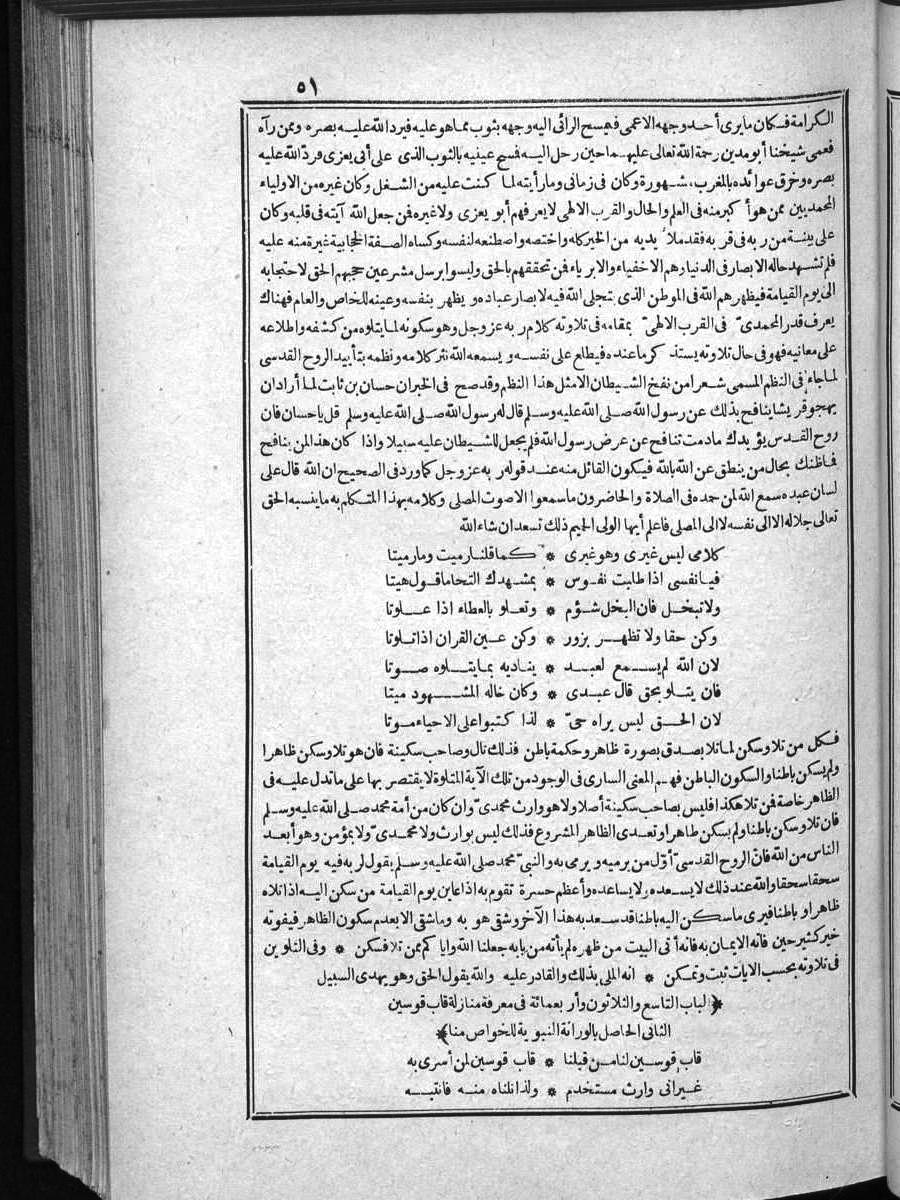 ٥١
الكرامة فكان ما يرى أحد وجهه الا عمى فيمسح الرائى اليه وجهه بثوب مما هو عليه فيرد الله عليه بصره وممن رآه
فعمى شيخنا أبو مدين رحمة الله تعالى عليهما حين رحل اليه فمسح عينيه بالثوب الذى على أبى يعزى فرد الله عليه
بصره وخرق عوائده بالمغرب مشهورة وكان فى زمانى وما رأيته لما كنت عليه من الشغل وكان غيره من الاولياء
المحمديين ممن هو أكبر منه فى العلم والحال والقرب الالهى لا يعرفهم أبو يعزى ولا غيره فمن جعل الله آيته فى قلبه وكان
على بينة من ربه فى قربه فقد ملأ يديه من الخير كله واختصه واصطنعه لنفسه وكساه الصفة الحجابية غيرة منه عليه
فلم تشهد حاله الابصار فى الدنيا رهم الاخفياء والابرياء فمن تحققهم بالحق وليسوا برسل مشرعين حجبهم الحق لاحتجابه
الى يوم القيامة فيظهرهم الله فى الموطن الذى يتجلى الله فيه لابصار عباده ويظهر بنفسه وعينه للخاص والعام فهناك
يعرف قدر المحمدىّ فى القرب الالهىّ بمقامه فى تلاوته كلام ربه عز وجل وهو سكونه لما يتلوه من كشفه واطلاعه
على معانيه فهو فى حال تلاوته يستذكر ما عنده فيطلع على نفسه ويسمعه الله نثر كلامه ونظمه بتأييد الروح القدسى
لما جاء فى النظم المسمى شعرا من نفخ الشيطان الامثل هذا النظم وقد صح فى الخبر ان حسان بن ثابت لما أراد ان
يهجو قريشا ينافح بذلك عن رسول الله صلى الله عليه وسلم قال له رسول الله صلى الله عليه وسلم قل يا حسان فان
روح القدس يؤيدك ما دمت تنافح عن عرض رسول الله فلم يجعل للشيطان عليه سبيلا واذا كان هذا لمن ينافح
فما ظنك بحال من ينطق عن الله بالله فيكون القائل منه عند قوله ربه عز وجل كما ورد فى الصحيح ان الله قال على
لسان عبده سمع الله لمن حمده فى الصلاة والحاضرون ما سمعوا الا صوت المصلى وكلامه بهذا المتكلم به ما ينسبه الحق
تعالى جلاله الا الى نفسه لا الى المصلى فاعلم أيها الولى الحميم ذلك تسعد ان شاء الله
كلامى ليس غيرى وهو غيرى * كما قلنا رميت وما رميتا
فيا نفسى اذا طلبت نفوس * بمشهدك التحاما قول هيتا
ولا تبخل فان البخل شؤم * وتعلو بالعطاء اذا علوتا
وكن حقا ولا تظهر بزور * وكن عين القران اذا تلوتا
لان الله لم يسمع لعبد * يناديه بما يتلوه صوتا
فان يتلو بحق قال عبدى * وكان خاله المشهود ميتا
لان الحق ليس يراه حىّ * لذا كتبوا على الاحياء موتا
فكل من تلا وسكن لما تلا بصدق بصورة ظاهر وحكمة باطن فذلك تال وصاحب سكينة فان هو تلا وسكن ظاهرا
ولم يسكن باطنا والسكون الباطن فهم المعنى السارى فى الوجود من تلك الآية المتلوة لا يقتصر بها على ما تدل عليه فى
الظاهر خاصة فمن تلا هكذا فليس بصاحب سكينة أصلا ولا هو وارث محمدىّ وان كان من أمة محمد صلى الله عليه وسلم
فان تلا وسكن باطنا ولم يسكن ظاهرا وتعدى الظاهر المشروع فذلك ليس بوارث ولا محمدىّ ولا بمؤمن وهو أبعد
الناس من الله فانّ الروح القدسىّ أوّل من يرميه ويرمى به والنبىّ محمد صلى الله عليه وسلم يقول لربه فيه يوم القيامة
سحقا سحقا والله عند ذلك لا يسعده، لا يساعده وأعظم حسرة تقوم به اذا عاين يوم القيامة من سكن اليه اذا تلاه
ظاهرا وباطنا فيرى ما سكن اليه باطنا قد سعد به هذا الآخر وشقى هو به وما شقى الا بعدم سكون الظاهر فيفوته
خير كثير حين فاته الايمان به فانه أتى البيت من ظهره لم يأته من بابه جعلنا الله وايا كم ممن تلا فسكن * وفى التلوين
فى تلاوته بحسب الايات ثبت وتمكن * انه الملى بذلك والقادر عليه والله يقول الحق وهو يهدى السبيل
﴿الباب التاسع والثلاثون وأربعمائة فى معرفة منازلة قاب قوسين
الثانى الحاصل بالوراثة النبوية للخواص منا﴾
قاب قوسين لنا من قبلنا * قاب قوسين لمن أسرى به
غير انى وارث مستخدم * ولذا نلناه منه فانتبه